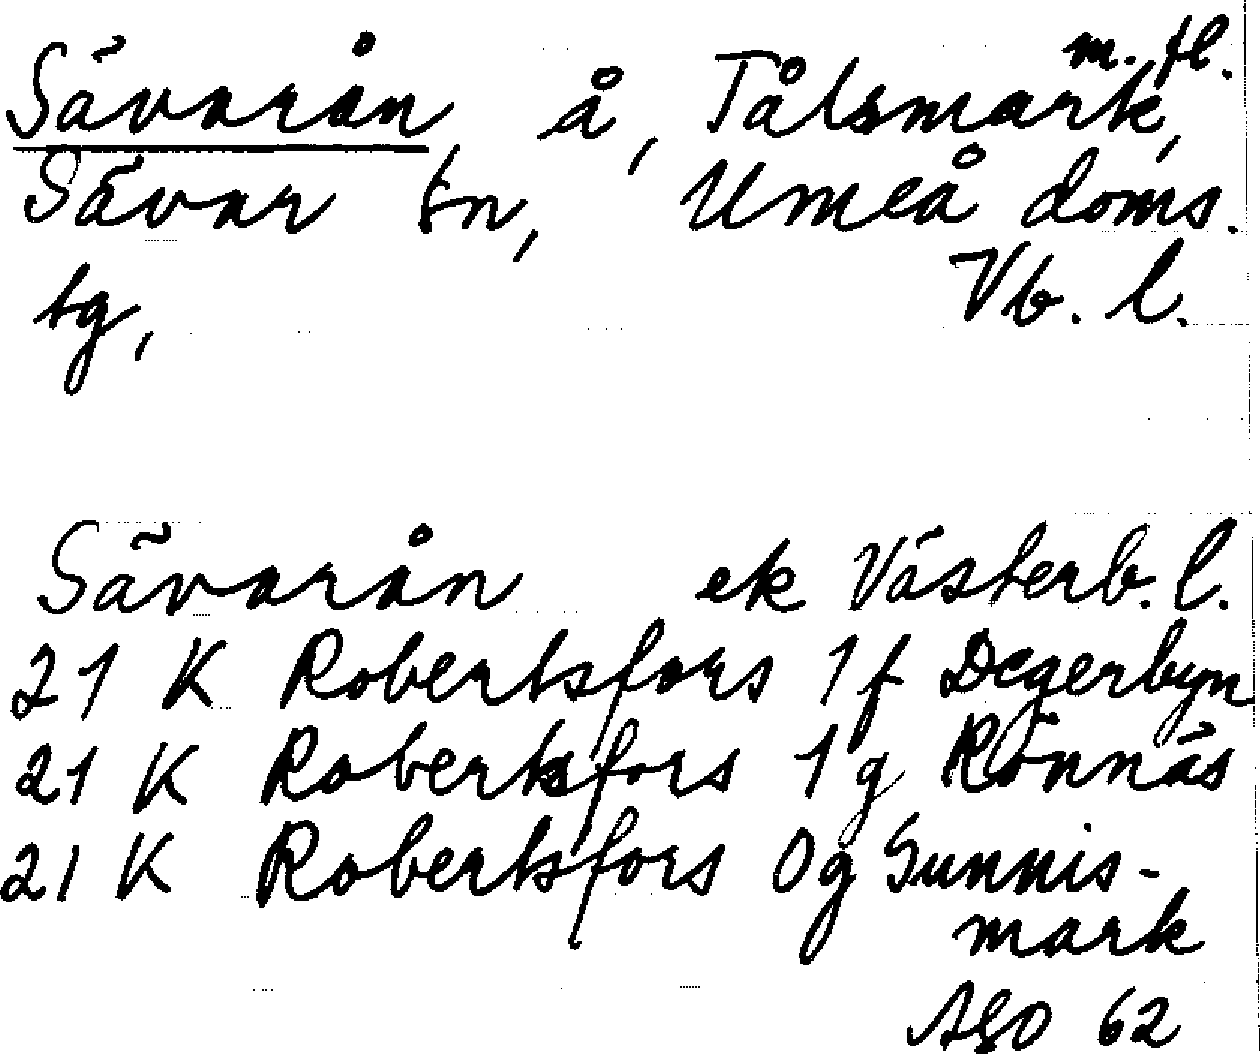 Sävarån, å, Tålsmark, m. fl.
Sävar sn, Umeå doms.
tg, Vb. l.
Sävarån ek Västerb. l.
21 K Robertsfors 1 f Degerbyn
21 K Robertsfors 1 g Rönnäs
21 K Robertsfors 0 g Gunnis-
mark
ASO 62